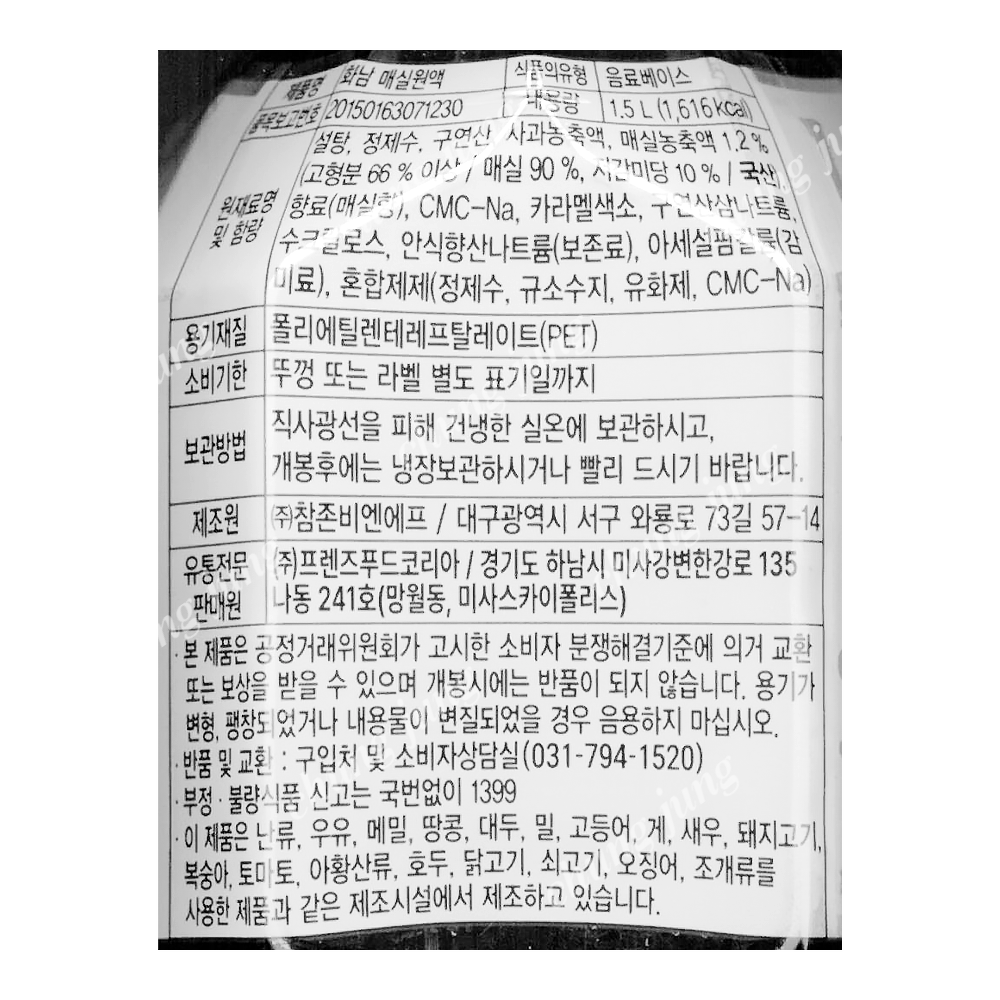 제품명 화남 매실원액 식품의유형 음료베이스
품목보고번호 20150163071230 내용량 1.5 L (1,616kcal)
원재료명 및 함량
설탕, 정제수, 구연산, 사과농축액, 매실농축액 1.2 %
(고형분 66 % 이상 / 매실 90 %, 자감미당 10 % / 국산),
향료(매실향), CMC-Na, 카라멜색소, 구연산삼나트륨,
수크랄로스, 안식향산나트륨(보존료), 아세설팜칼륨(감
미료), 혼합제제(정제수, 규소수지, 유화제, CMC-Na)
용기재질 폴리에틸렌테레프탈레이트(PET)
소비기한 뚜껑 또는 라벨 별도 표기일까지
보관방법 직사광선을 피해 건냉한 실온에 보관하시고,
개봉후에는 냉장보관하시거나 빨리 드시기 바랍니다.
제조원 ㈜참존비엔에프 / 대구광역시 서구 와룡로 73길 57-14
유통전문 (주)프렌즈푸드코리아 / 경기도 하남시 미사강변한강로 135
판매원 나동 241호(망월동, 미사스카이폴리스)
· 본 제품은 공정거래위원회가 고시한 소비자 분쟁해결기준에 의거 교환
또는 보상을 받을 수 있으며 개봉시에는 반품이 되지 않습니다. 용기가
변형, 팽창되었거나 내용물이 변질되었을 경우 음용하지 마십시오.
· 반품 및 교환 : 구입처 및 소비자상담실(031-794-1520)
· 부정 · 불량식품 신고는 국번없이 1399
· 이 제품은 난류, 우유, 메밀, 땅콩, 대두, 밀, 고등어, 게, 새우, 돼지고기,
복숭아, 토마토, 아황산류, 호두, 닭고기, 쇠고기, 오징어, 조개류를
사용한 제품과 같은 제조시설에서 제조하고 있습니다.